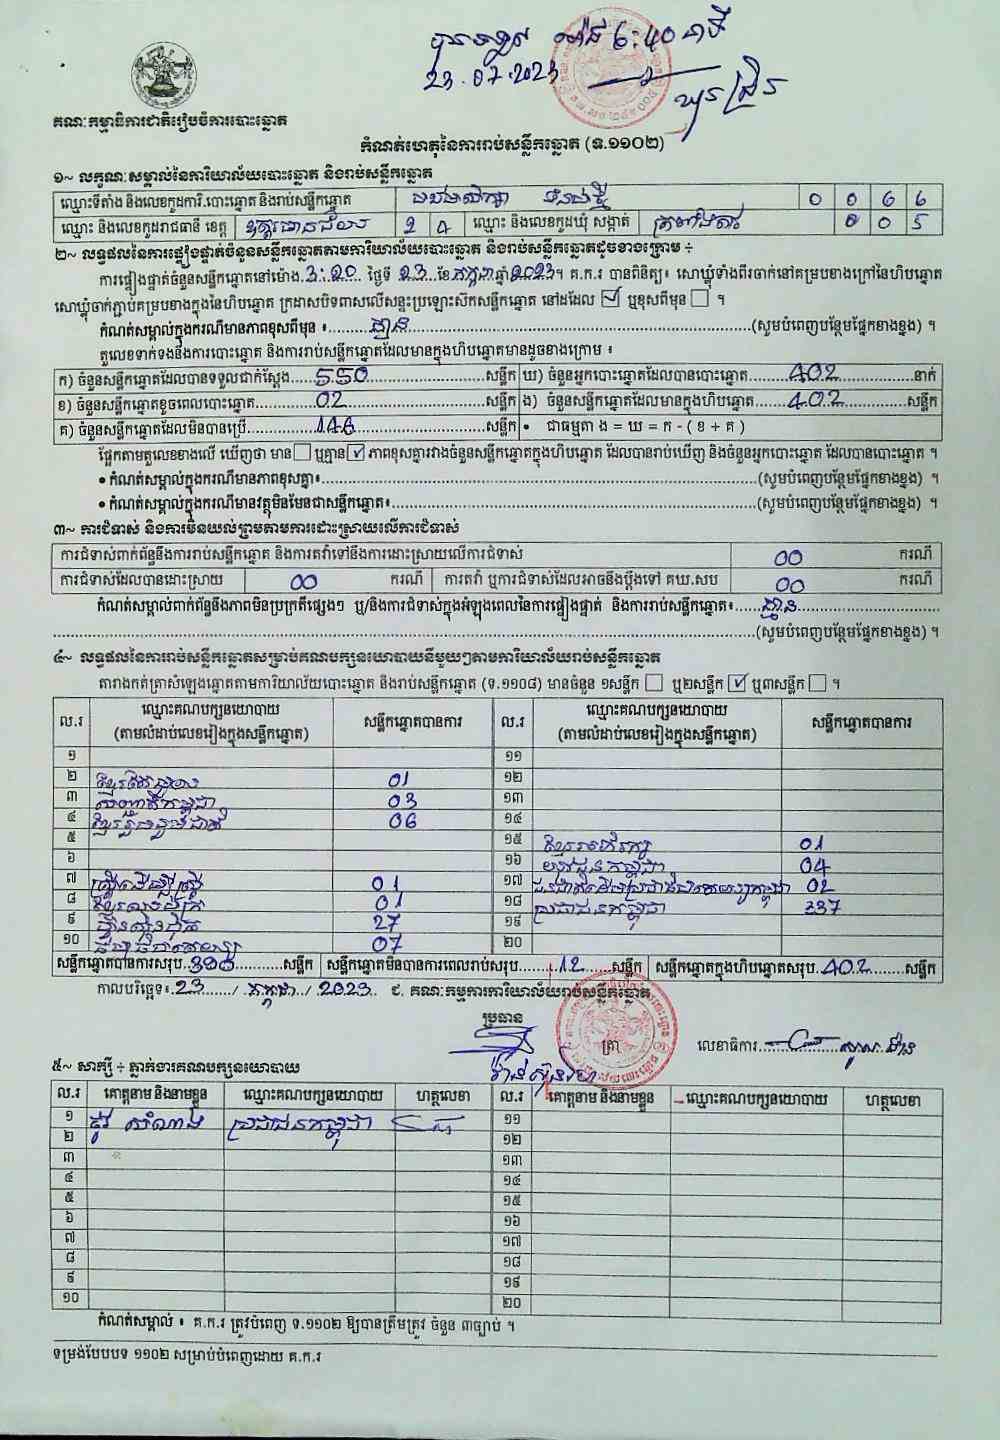 ម៉ោង 6:40 នាទី
23.07.2023
គណៈកម្មាធិការជាតិរៀបចំការបោះឆ្នោត
កំណត់ហេតុនៃការរាប់សន្លឹកឆ្នោត (ទ.១១០២)
១~ លក្ខណៈសម្គាល់នៃការិយាល័យបោះឆ្នោត និងរាប់សន្លឹកឆ្នោត
ឈ្មោះទីតាំង និងលេខកូដការិ.បោះឆ្នោត និងរាប់សន្លឹកឆ្នោត 0 0 6 6
ឈ្មោះ និងលេខកូដរាជធានី ខេត្ត ឧត្តរមានជ័យ 2 ឈ្មោះ និងលេខកូដឃុំ សង្កាត់ 0 0 5
២~ លទ្ធផលនៃការផ្ទៀងផ្ទាត់ចំនួនសន្លឹកឆ្នោតតាមការិយាល័យបោះឆ្នោត និងរាប់សន្លឹកឆ្នោតដូចខាងក្រោម ÷
ការផ្ទៀងផ្ទាត់ចំនួនសន្លឹកឆ្នោតនៅម៉ោង 3:20 ថ្ងៃទី 23 ខែ កក្កដា ឆ្នាំ 2023 ។ គ.ក.រ បានពិនិត្យ៖ សោឃ្លុំទាំងពីរចាក់នៅគម្របខាងក្រៅនៃហិបឆ្នោត
សោឃ្លុំចាក់ភ្ជាប់គម្របខាងក្នុងនៃហិបឆ្នោត ក្រដាសបិទពាសលើសន្ទះប្រឡោះសឹកសន្លឹកឆ្នោត នៅដដែល ☑ ឬខុសពីមុន ☐ ។
កំណត់សម្គាល់ក្នុងករណីមានភាពខុសពីមុន ៖ គ្មាន (សូមបំពេញបន្ថែមផ្នែកខាងខ្នង) ។
តួលេខទាក់ទងនឹងការបោះឆ្នោត និងការរាប់សន្លឹកឆ្នោតដែលមានក្នុងហិបឆ្នោតមានដូចខាងក្រោម ៖
ក) ចំនួនសន្លឹកឆ្នោតដែលបានទទួលជាក់ស្តែង 550 សន្លឹក ឃ) ចំនួនអ្នកបោះឆ្នោតដែលបានបោះឆ្នោត 402 នាក់
ខ) ចំនួនសន្លឹកឆ្នោតខូចពេលបោះឆ្នោត 02 សន្លឹក ង) ចំនួនសន្លឹកឆ្នោតដែលមានក្នុងហិបឆ្នោត 402 សន្លឹក
គ) ចំនួនសន្លឹកឆ្នោតដែលមិនបានប្រើ 146 សន្លឹក • ជាធម្មតា ង = ឃ = ក - ( ខ + គ )
ផ្អែកតាមតួលេខខាងលើ ឃើញថា មាន ☐ ឬគ្មាន ☑ ភាពខុសគ្នារវាងចំនួនសន្លឹកឆ្នោតក្នុងហិបឆ្នោត ដែលបានរាប់ឃើញ និងចំនួនអ្នកបោះឆ្នោត ដែលបានបោះឆ្នោត ។
• កំណត់សម្គាល់ក្នុងករណីមានភាពខុសគ្នា៖ (សូមបំពេញបន្ថែមផ្នែកខាងខ្នង) ។
• កំណត់សម្គាល់ក្នុងករណីមានវត្ថុមិនមែនជាសន្លឹកឆ្នោត៖ (សូមបំពេញបន្ថែមផ្នែកខាងខ្នង) ។
៣~ ការជំទាស់ និងការមិនយល់ព្រមតាមការដោះស្រាយលើការជំទាស់
ការជំទាស់ពាក់ព័ន្ធនឹងការរាប់សន្លឹកឆ្នោត និងការតវ៉ាទៅនឹងការដោះស្រាយលើការជំទាស់ 00 ករណី
ការជំទាស់ដែលបានដោះស្រាយ 00 ករណី ការតវ៉ា ឬការជំទាស់ដែលអាចនឹងប្តឹងទៅ គឃ.សប 00 ករណី
កំណត់សម្គាល់ពាក់ព័ន្ធនឹងភាពមិនប្រក្រតីផ្សេងៗ ឬ/និងការជំទាស់ក្នុងអំឡុងពេលនៃការផ្ទៀងផ្ទាត់ និងការរាប់សន្លឹកឆ្នោត៖ គ្មាន
(សូមបំពេញបន្ថែមផ្នែកខាងខ្នង) ។
៤~ លទ្ធផលនៃការរាប់សន្លឹកឆ្នោតសម្រាប់គណបក្សនយោបាយនីមួយៗតាមការិយាល័យរាប់សន្លឹកឆ្នោត
តារាងកត់ត្រាសំឡេងឆ្នោតតាមការិយាល័យបោះឆ្នោត និងរាប់សន្លឹកឆ្នោត (ទ.១១០៨) មានចំនួន ១សន្លឹក ☐ ឬ២សន្លឹក ☑ ឬ៣សន្លឹក ☐ ។
ល.រ ឈ្មោះគណបក្សនយោបាយ (តាមលំដាប់លេខរៀងក្នុងសន្លឹកឆ្នោត) សន្លឹកឆ្នោតបានការ ល.រ ឈ្មោះគណបក្សនយោបាយ (តាមលំដាប់លេខរៀងក្នុងសន្លឹកឆ្នោត) សន្លឹកឆ្នោតបានការ
១ ១១
២ 01 ១២
៣ 03 ១៣
៤ 06 ១៤
៥ ១៥ 01
៦ ១៦ 04
៧ 01 ១៧ 02
៨ 01 ១៨ ប្រជាជនកម្ពុជា 337
៩ 27 ១៩
១០ 07 ២០
សន្លឹកឆ្នោតបានការសរុប 390 សន្លឹក សន្លឹកឆ្នោតមិនបានការពេលរាប់សរុប 12 សន្លឹក សន្លឹកឆ្នោតក្នុងហិបឆ្នោតសរុប 402 សន្លឹក
កាលបរិច្ឆេទ៖ 23 / កក្កដា / 2023 ជ. គណៈកម្មការការិយាល័យរាប់សន្លឹកឆ្នោត
ប្រធាន ត្រា លេខាធិការ
៥~ សាក្សី ÷ ភ្នាក់ងារគណបក្សនយោបាយ
ល.រ គោត្តនាម និងនាមខ្លួន ឈ្មោះគណបក្សនយោបាយ ហត្ថលេខា ល.រ គោត្តនាម និងនាមខ្លួន ឈ្មោះគណបក្សនយោបាយ ហត្ថលេខា
១ សំណាង ប្រជាជនកម្ពុជា ១១
២ ១២
៣ ១៣
៤ ១៤
៥ ១៥
៦ ១៦
៧ ១៧
៨ ១៨
៩ ១៩
១០ ២០
កំណត់សម្គាល់ ៖ គ.ក.រ ត្រូវបំពេញ ទ.១១០២ ឱ្យបានត្រឹមត្រូវ ចំនួន ៣ច្បាប់ ។
ទម្រង់បែបបទ ១១០២ សម្រាប់បំពេញដោយ គ.ក.រ